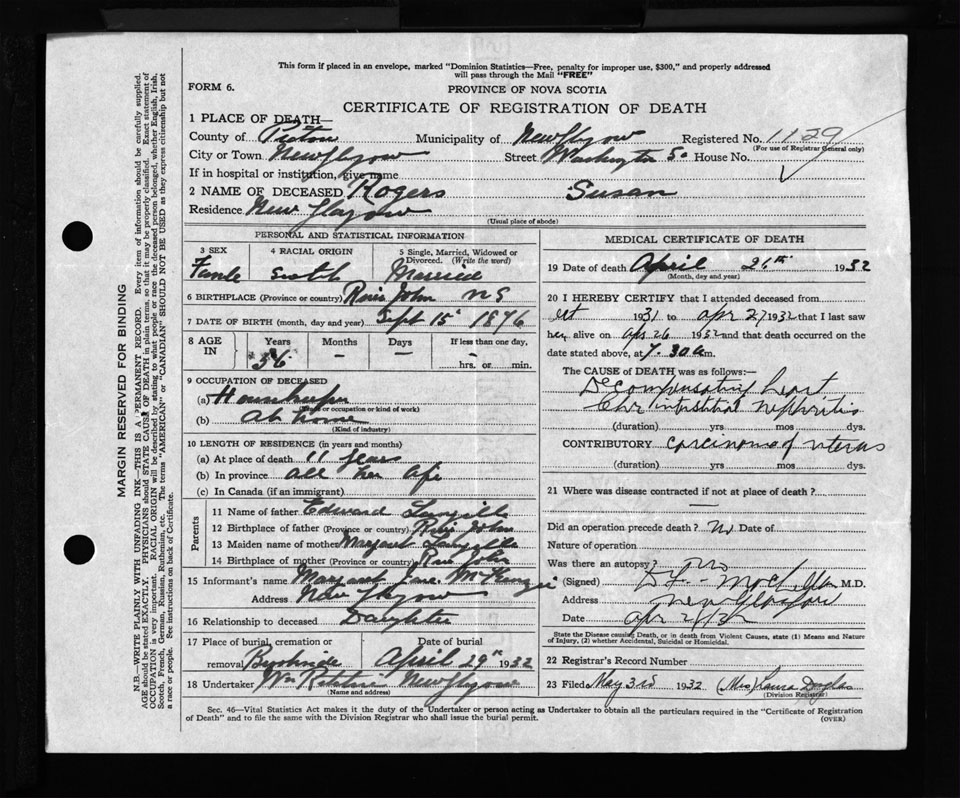 This form if placed in an envelope, marked "Dominion Statistics—Free, penalty for improper use, $300," and properly addressed
will pass through the Mail "FREE"
FORM 6.
PROVINCE OF NOVA SCOTIA
CERTIFICATE OF REGISTRATION OF DEATH
1 PLACE OF DEATH—
County of Pictou Municipality of New Glasgow Registered No. 1129
(For use of Registrar General only)
City or Town New Glasgow Street Washington St House No.
If in hospital or institution, give name
2 NAME OF DECEASED Rogers Susan
Residence New Glasgow
(Usual place of abode)
PERSONAL AND STATISTICAL INFORMATION
3 SEX 4 RACIAL ORIGIN 5 Single, Married, Widowed or
Divorced. (Write the word)
Scotch Married
6 BIRTHPLACE (Province or country) River John N S
7 DATE OF BIRTH (month, day and year) Sept 15" 1876
8 AGE IN Years Months Days If less than one day,
56 — — — hrs. or min.
9 OCCUPATION OF DECEASED
(a) Housekeeper
(Trade or occupation or kind of work)
(b) At home
(Kind of industry)
10 LENGTH OF RESIDENCE (in years and months)
(a) At place of death 11 years
(b) In province all her life
(c) In Canada (if an immigrant)
Parents
11 Name of father Edward Langill
12 Birthplace of father (Province or country) River John
13 Maiden name of mother Margaret
14 Birthplace of mother (Province or country) River John
15 Informant's name Margaret Jane McKenzie
Address New Glasgow
16 Relationship to deceased Daughter
17 Place of burial, cremation or Date of burial
removal April 29th 1932
18 Undertaker Wm New Glasgow
(Name and address)
MEDICAL CERTIFICATE OF DEATH
19 Date of death April 1932
(Month, day and year)
20 I HEREBY CERTIFY that I attended deceased from
Oct 1931 to Apr 27 1932 that I last saw
her alive on Apr 26 1932 and that death occurred on the
date stated above, at 7.30 a m.
The CAUSE of DEATH was as follows:—
Decompensating heart
Chr interstitial nephritis
(duration) yrs mos dys.
CONTRIBUTORY carcinoma of uterus
(duration) yrs mos dys.
21 Where was disease contracted if not at place of death?
—
Did an operation precede death? No Date of
Nature of operation
Was there an autopsy? no
(Signed) M.D.
Address New Glasgow
Date
State the Disease causing Death, or in death from Violent Causes, state (1) Means and Nature
of Injury, (2) whether Accidental, Suicidal or Homicidal.
22 Registrar's Record Number
23 Filed May 3rd 1932 (Mrs) Laura Douglas
(Division Registrar)
Sec. 46—Vital Statistics Act makes it the duty of the Undertaker or person acting as Undertaker to obtain all the particulars required in the "Certificate of Registration
of Death" and to file the same with the Division Registrar who shall issue the burial permit.
(OVER)
MARGIN RESERVED FOR BINDING
N.B.—WRITE PLAINLY WITH UNFADING INK—THIS IS A PERMANENT RECORD. Every item of information should be carefully supplied.
AGE should be stated EXACTLY. PHYSICIANS should STATE CAUSE OF DEATH in plain terms, so that it may be properly classified. Exact statement of
OCCUPATION is very important. RACIAL ORIGIN will be described by stating to what people or race the deceased person belonged, whether English, Irish,
Scotch, French, German, Russian, Ruthenian, etc. The terms "AMERICAN" or "CANADIAN" SHOULD NOT BE USED as they express citizenship but not
a race or people. See instructions on back of Certificate.